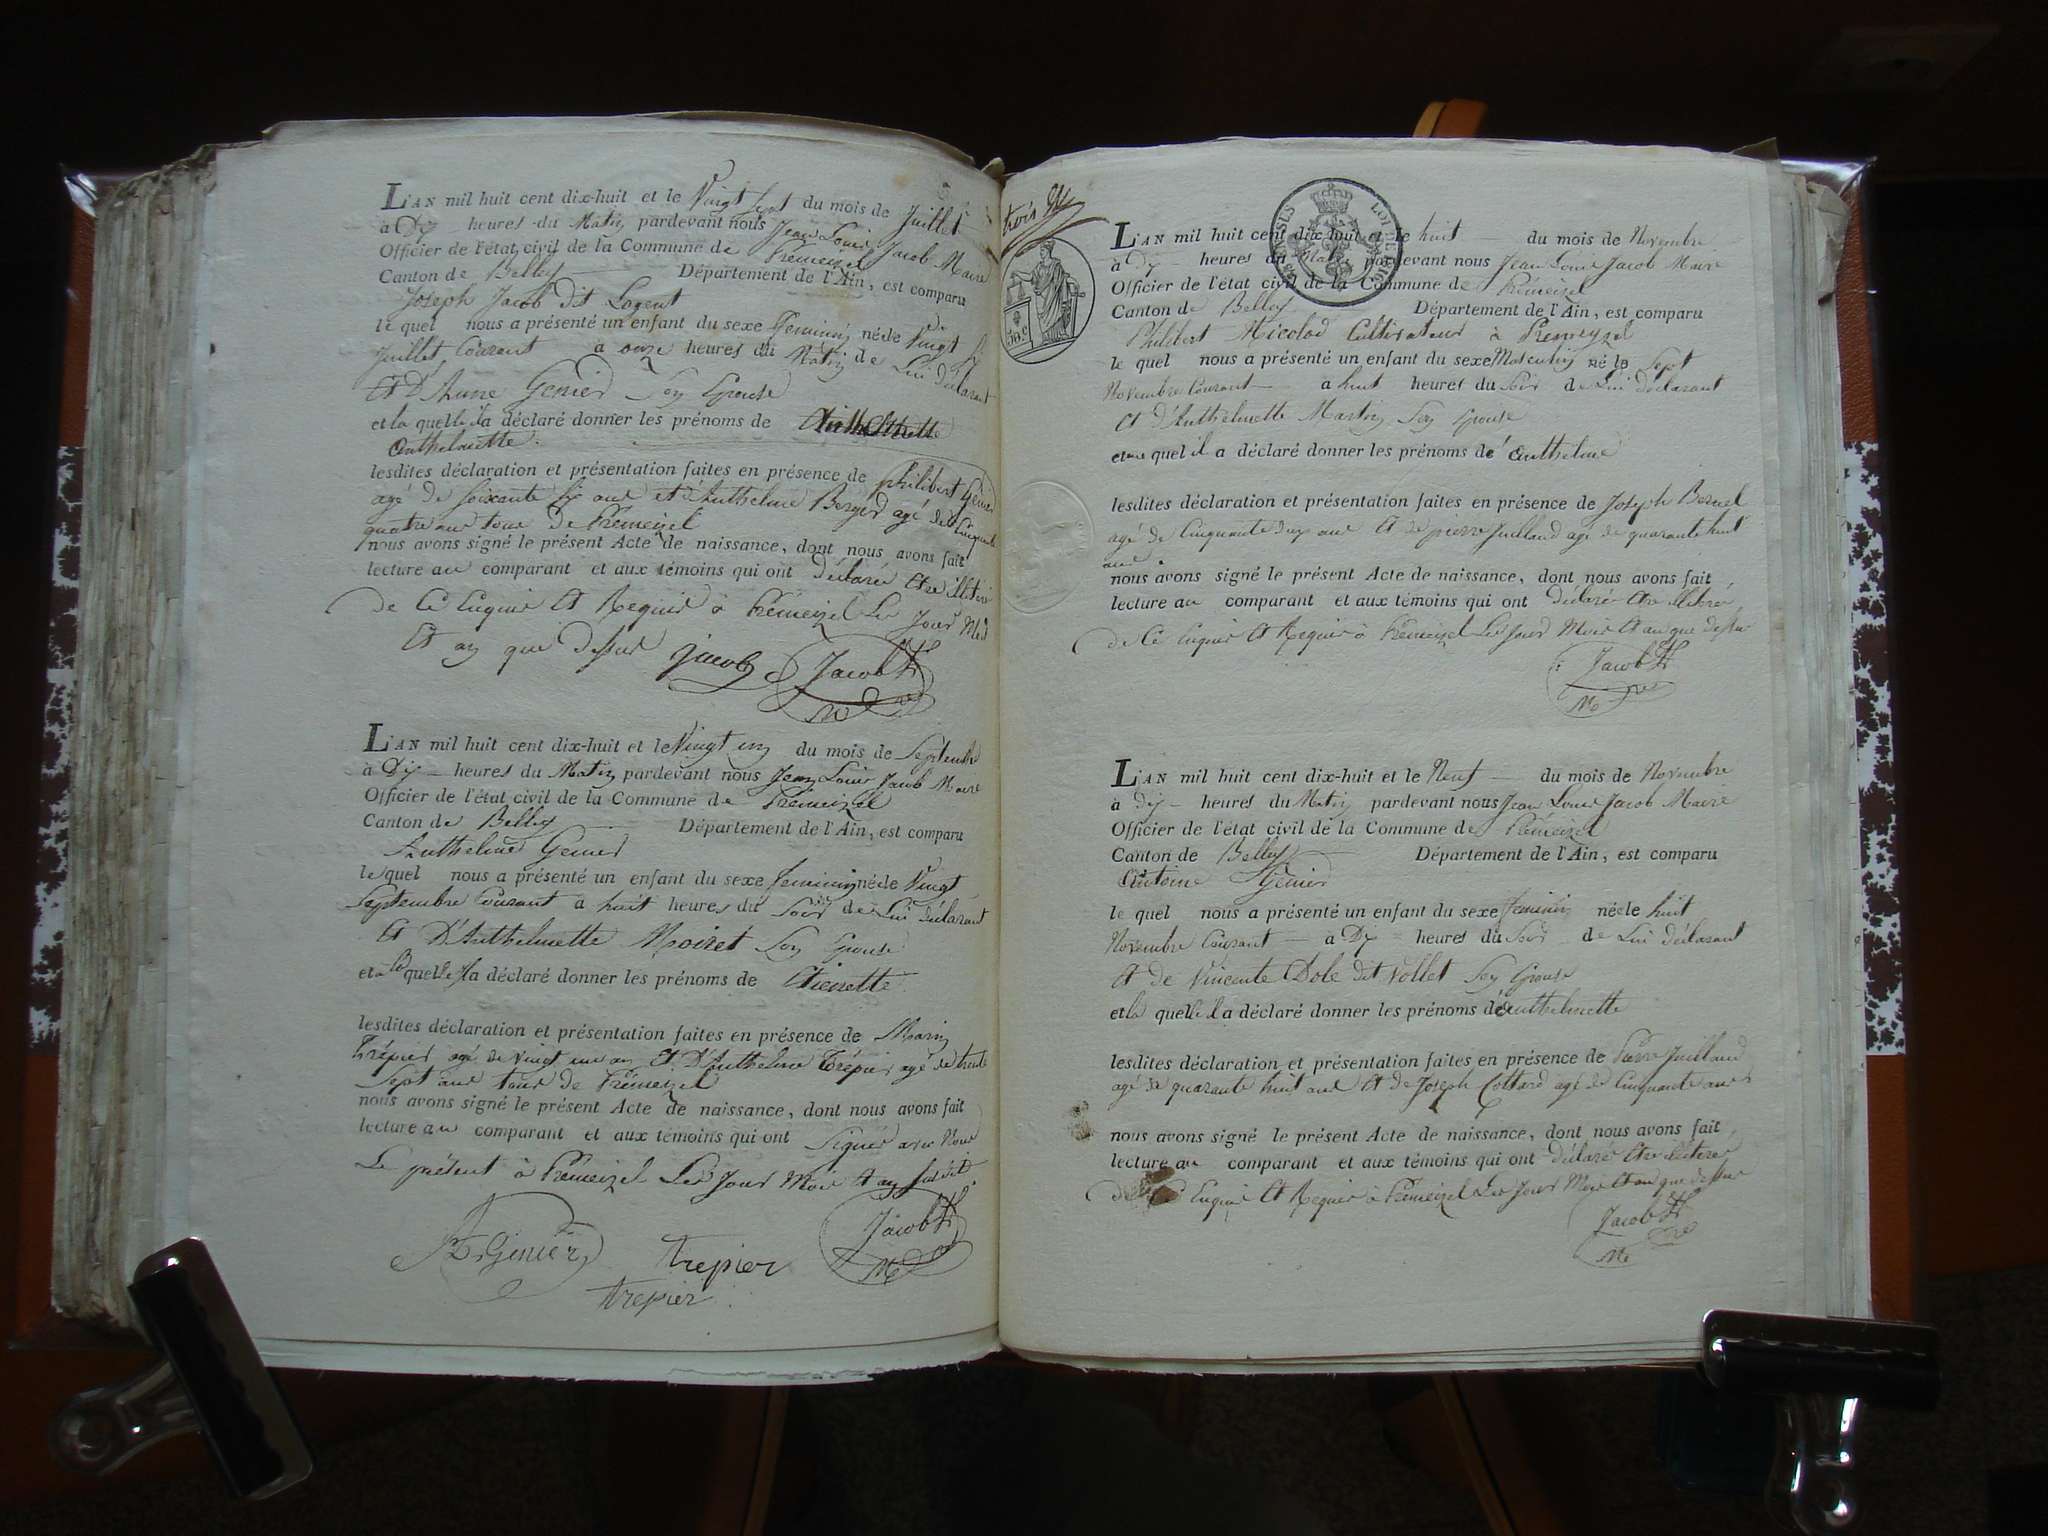 L'AN mil huit cent dix-huit et le Vingt Sept du mois de Juillet
à Dix heures du Matin pardevant nous Jean Louis Jacob Maire
Officier de l'état civil de la Commune de Prémeizel
Canton de Belley Département de l'Ain, est comparu
Joseph Jacob dit Logent
le quel nous a présenté un enfant du sexe feminin née le Vingt
Juillet Courant à onze heures du Matin de Lui déclarant
Et D'Anne Genier Son Epouse
et la quelle il a déclaré donner les prénoms de
Anthelmette
lesdites déclaration et présentation faites en présence de philibert Genier
agé de soixante six ans et d'Anthelme Berger agé de Cinquante
quatre ans tous de Prémeizel
nous avons signé le présent Acte de naissance, dont nous avons fait
lecture au comparant et aux témoins qui ont déclaré Etre illiteré
de Ce Enquis Et Requis à Prémeizel Les Jour Mois
Et an que dessus Jacob Jacob
L'AN mil huit cent dix-huit et le Vingt un du mois de Septembre
à Dix heures du Matin pardevant nous Jean Louis Jacob Maire
Officier de l'état civil de la Commune de Prémeizel
Canton de Belley Département de l'Ain, est comparu
Anthelme Genier
le quel nous a présenté un enfant du sexe feminin née le Vingt
Septembre Courant à huit heures du Soir de Lui déclarant
Et D'Anthelmette Moiret Son Epouse
et à la quelle il a déclaré donner les prénoms de Etienette
lesdites déclaration et présentation faites en présence de Marin
Trépier agé de vingt un an Et D'Anthelme Trépier agé de trente
Sept ans tous de Prémeizel
nous avons signé le présent Acte de naissance, dont nous avons fait
lecture au comparant et aux témoins qui ont Signés avec Nous
Le présent à Prémeizel Les Jour Mois Et an susdit
Genier trepier Jacob
trepier
trois
50c
L'AN mil huit cent dix-huit et le huit du mois de Novembre
à Dix heures du Matin pardevant nous Jean Louis Jacob Maire
Officier de l'état civil de la Commune de Prémeizel
Canton de Belley Département de l'Ain, est comparu
Philibert Micolod Cultivateur à Premeyzel
le quel nous a présenté un enfant du sexe Masculin né le Sept
Novembre Courant à huit heures du Soir de Lui déclarant
Et D'Anthelmette Martin Son Epouse
et au quel il a déclaré donner les prénoms de Anthelme
lesdites déclaration et présentation faites en présence de Joseph Bernel
agé de Cinquante deux ans Et de pierre Juilland agé de quarante huit
ans
nous avons signé le présent Acte de naissance, dont nous avons fait
lecture au comparant et aux témoins qui ont déclaré Etre illiteré
de Ce Enquis Et Requis à Prémeizel Les Jour Mois Et an que dessus
Jacob
L'AN mil huit cent dix-huit et le Neuf du mois de Novembre
à dix heures du Matin pardevant nous Jean Louis Jacob Maire
Officier de l'état civil de la Commune de Prémeizel
Canton de Belley Département de l'Ain, est comparu
Antoine Genier
le quel nous a présenté un enfant du sexe feminin née le huit
Novembre Courant à Dix heures du Soir de Lui déclarant
Et de Vincente Dole dit Vollet Son Epouse
et la quelle il a déclaré donner les prénoms de Anthelmette
lesdites déclaration et présentation faites en présence de Pierre Juilland
agé de quarante huit ans Et de Joseph Cottard agé de Cinquante ans
nous avons signé le présent Acte de naissance, dont nous avons fait
lecture au comparant et aux témoins qui ont déclaré Etre illiteré
de Ce Enquis Et Requis à Prémeizel Les Jour Mois Et an que dessus
Jacob